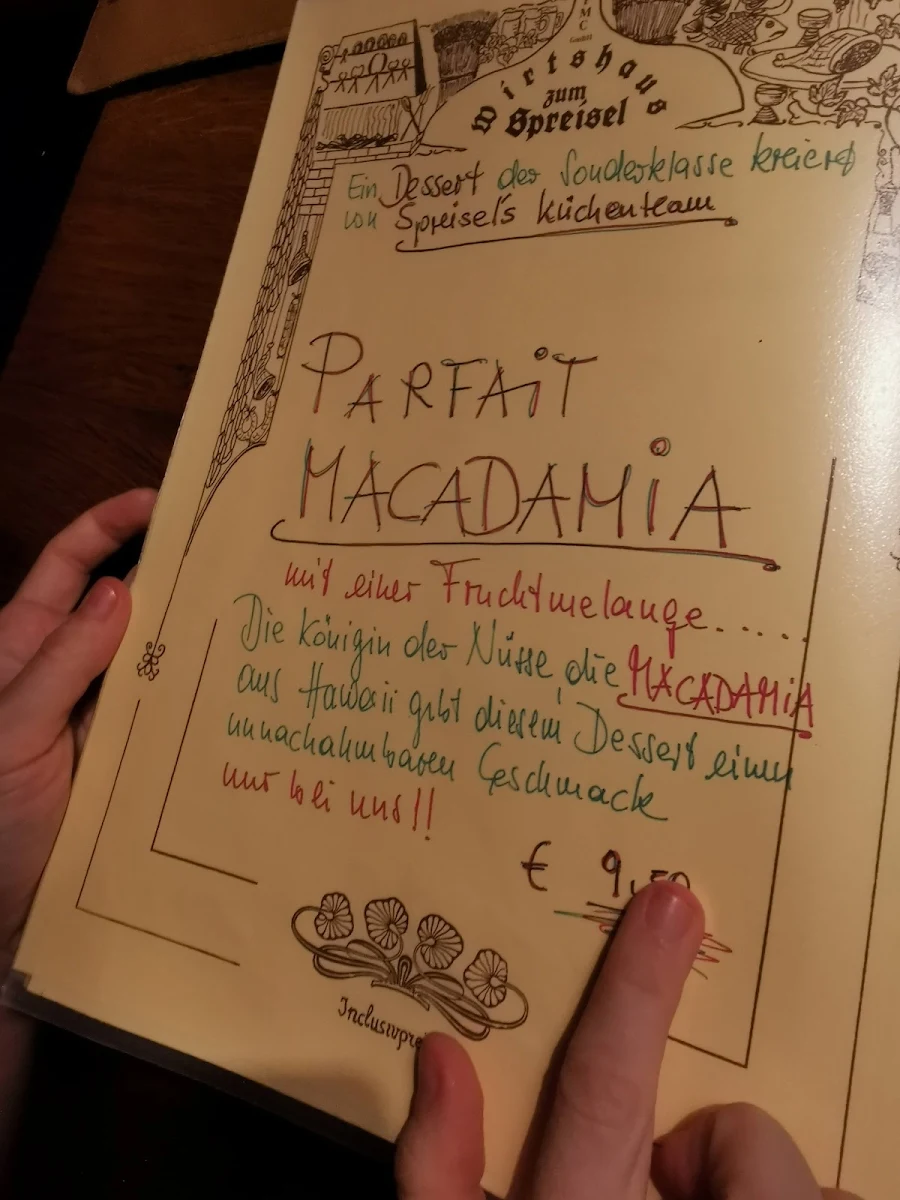 Wirtshaus
zum
Spreisel
Ein Dessert der Sonderklasse kreiert
von Spreisel's Küchenteam
PARFAiT
MACADAMiA
mit einer Fruchtmelange.....
Die Königin der Nüsse, die MACADAMiA
aus Hawaii gibt diesem Dessert einen
unnachahmbaren Geschmack
nur bei uns!!
€ 9,50
Inclusivpre